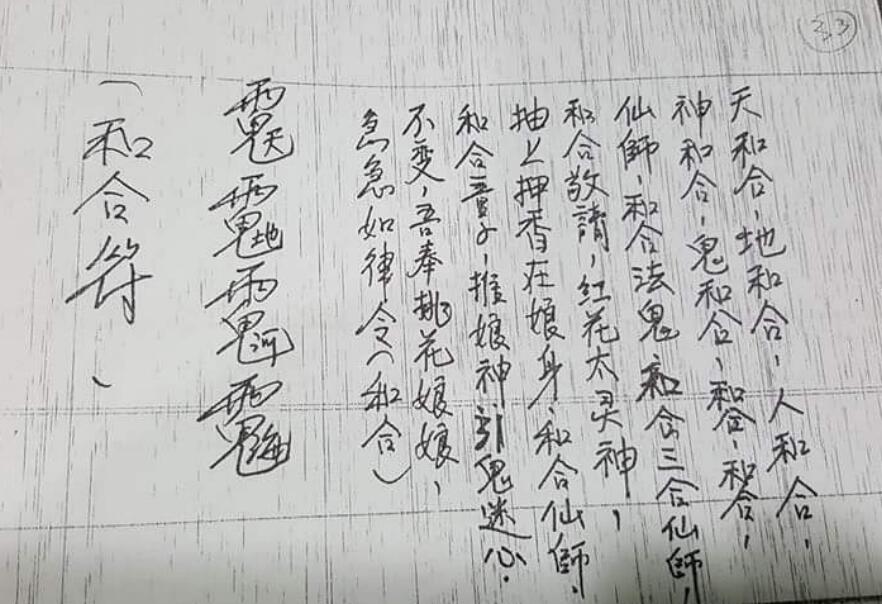 33
天和合,地和合,人和合,
神和合,鬼和合,和合,和合,
仙師,和合法鬼和合三合仙師,
和合敬請,红花太灵神,
抽上押香在娘身,和合仙師,
和合童子,推娘神引鬼迷心.
不变,吾奉桃花娘娘,
急急如律令(和合)
(和合符)